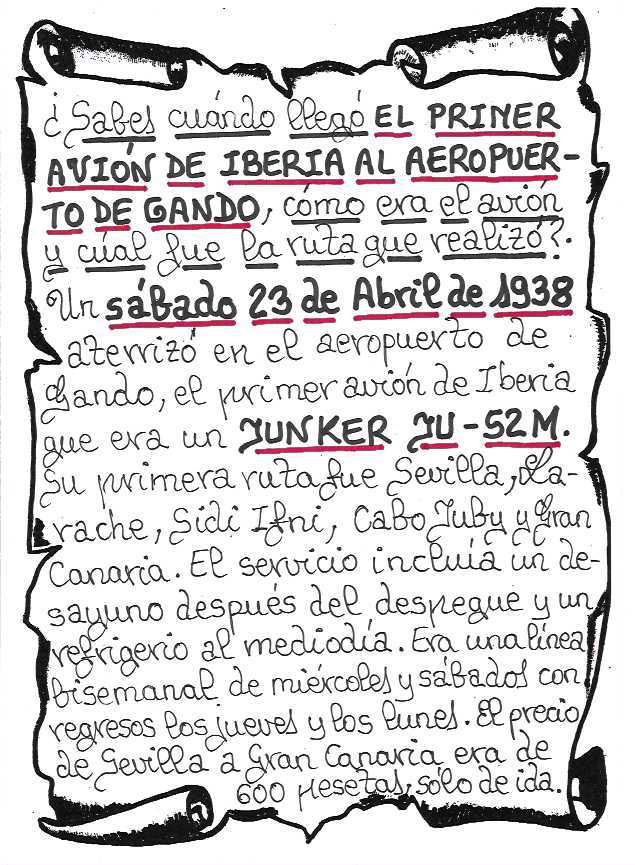 ¿Sabes cuándo llegó EL PRIMER
AVIÓN DE IBERIA AL AEROPUER-
TO DE GANDO, cómo era el avión
y cúal fue la ruta que realizó?.
Un sábado 23 de Abril de 1938
aterrizó en el aeropuerto de
Gando, el primer avión de Iberia
que era un JUNKER JU-52M.
Su primera ruta fue Sevilla, La-
rache, Sidi Ifni, Cabo Juby y Gran
Canaria. El servicio incluía un de-
sayuno después del despegue y un
refrigerio al mediodía. Era una línea
bisemanal de miércoles y sábados con
regresos los jueves y los lunes. El precio
de Sevilla a Gran Canaria era de
600 pesetas, sólo de ida.